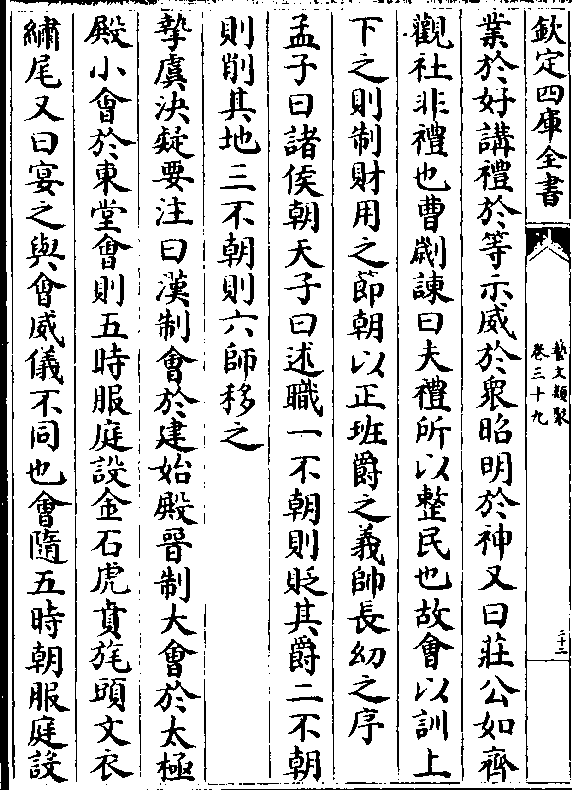 欽定四庫全書
藝文類聚
卷三十九
二十二
業於好講禮於等示威於衆昭明於神又曰莊公如齊
觀社非禮也曹劌諫曰夫禮所以整民也故會以訓上
下之則制財用之節朝以正班爵之義帥長幼之序
孟子曰諸侯朝天子曰述職一不朝則貶其爵二不朝
則削其地三不朝則六師移之
摯虞決疑要注曰漢制會於建始殿晉制大會於太極
殿小會於東堂會則五時服庭設金石虎賁旄頭文衣
繡尾又曰宴之與會威儀不同也會隨五時朝服庭設